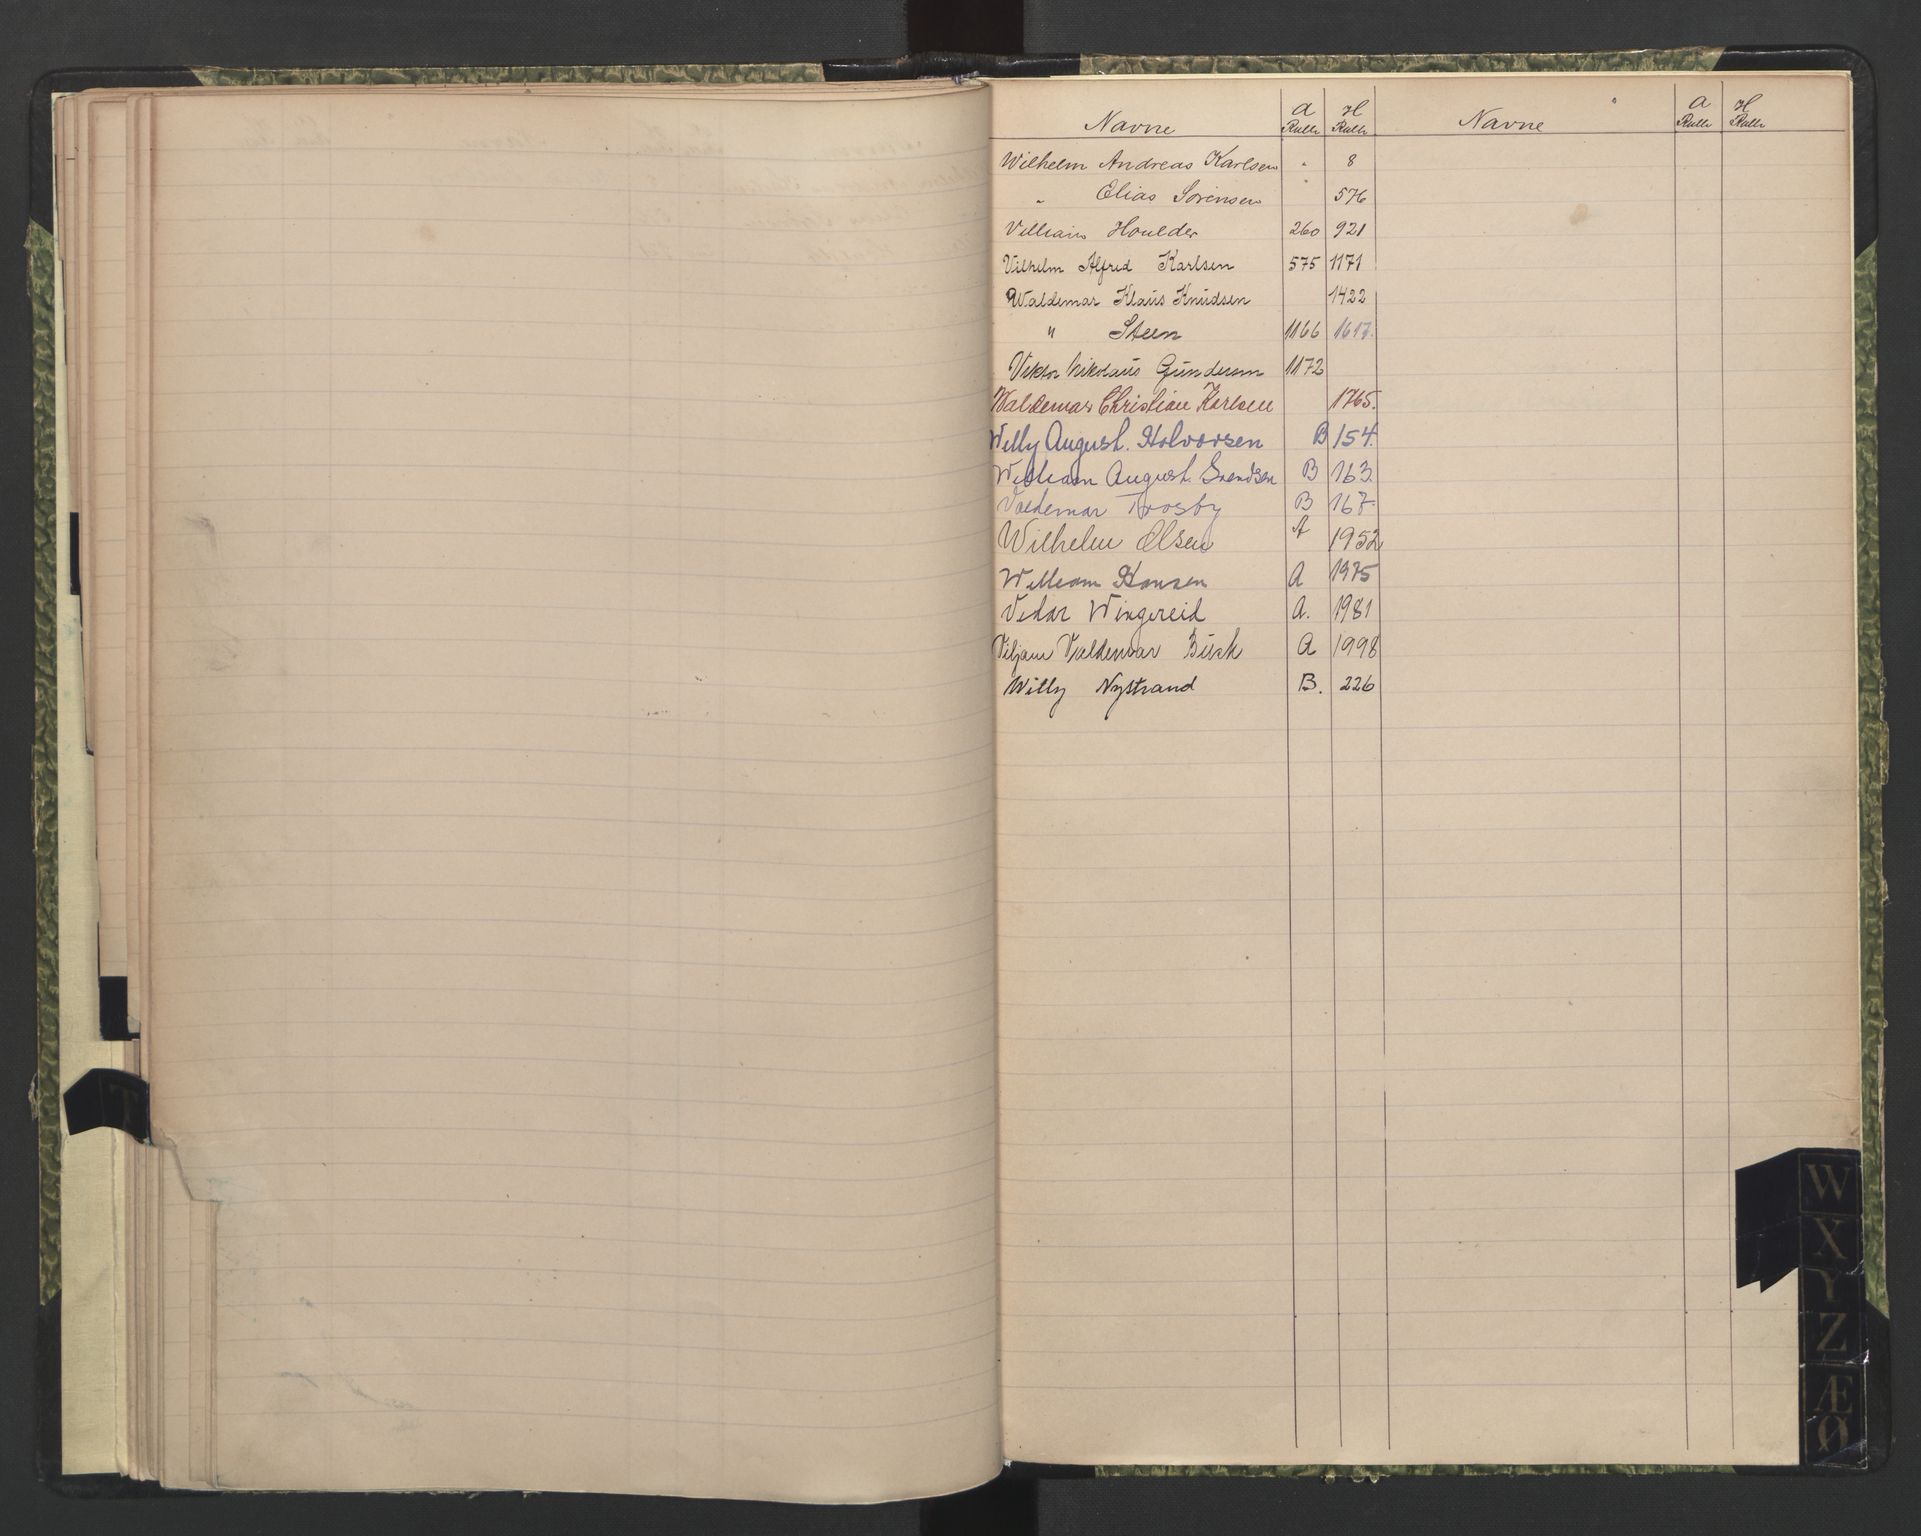 Navne A Rulle H Rulle Navne A Rulle H Rulle
Wilhelm Andreas Karlsen " 8
" Elias Sørensen " 576
Villiam Houlder 260 921
Vilhelm Alfred Karlsen 575 1171
Waldemar Klaus Knudsen 1422
" Steen 1166 1617.
Viktor Nikolaus Gundersen 1172
Waldemar Christian Karlsen 1765.
Willy August. Halvorsen B 154.
William August. Svendsen B 163.
Valdemar Trosby B 167.
Wilhelm Olsen A 1952
William Hansen A 1975
Vidar Wingereid A. 1981
Viljam Valdemar Busk A 1998
Willy Nystrand B. 226
T
W
X
Y
Z
Æ
Ø